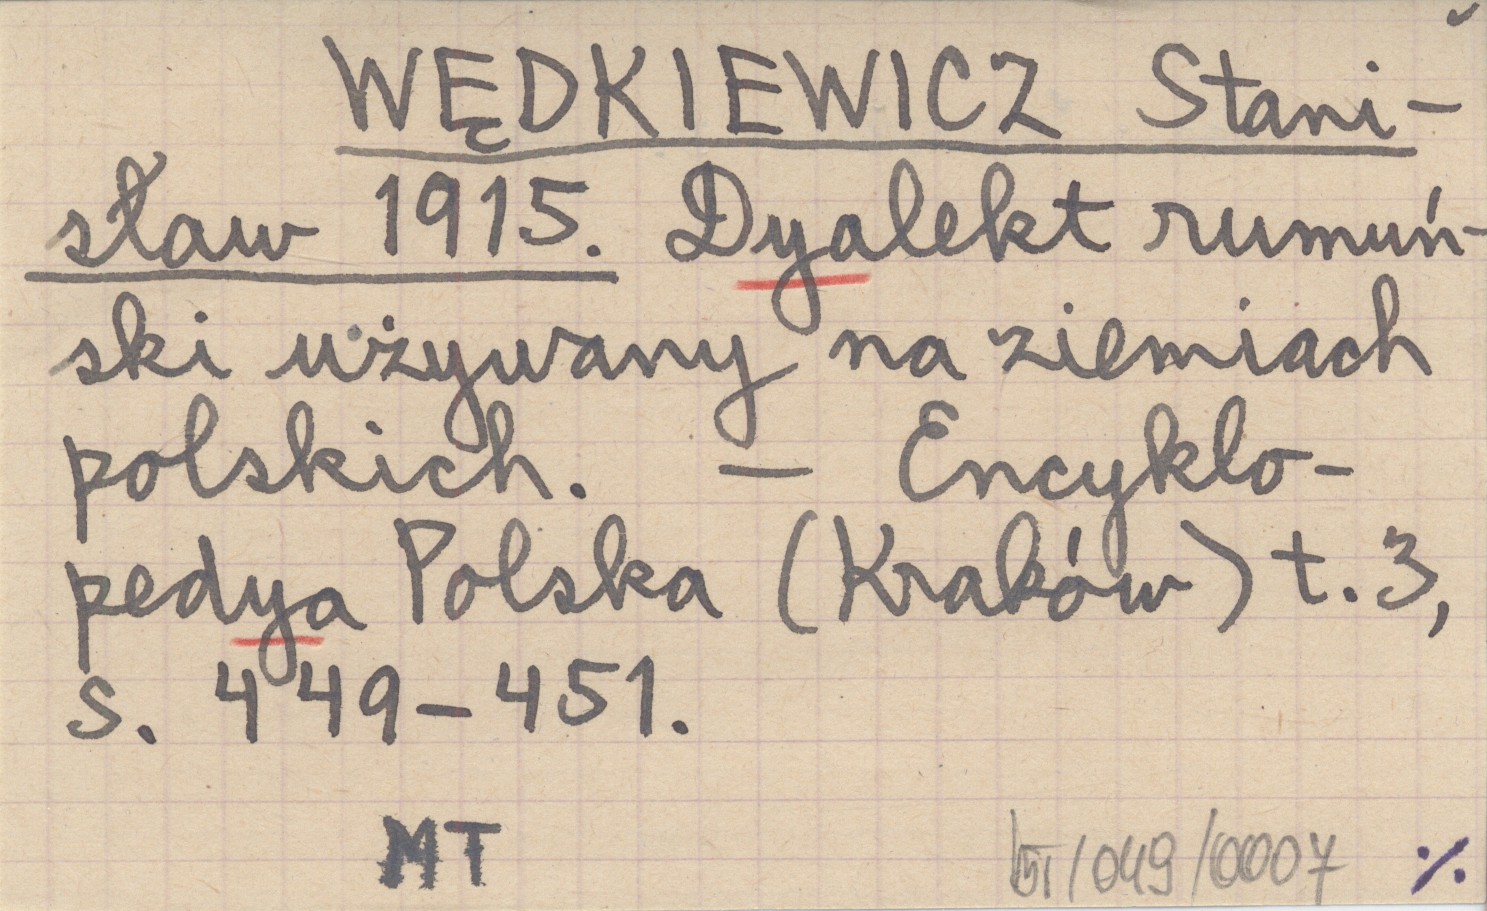 WĘDKIEWICZ Stani-
sław 1915. Dyalekt rumuń-
ski używany na ziemiach
polskich. — Encyklo-
pedya Polska (Kraków) t. 3,
s. 449-451.
MT
/049/0007 ./.